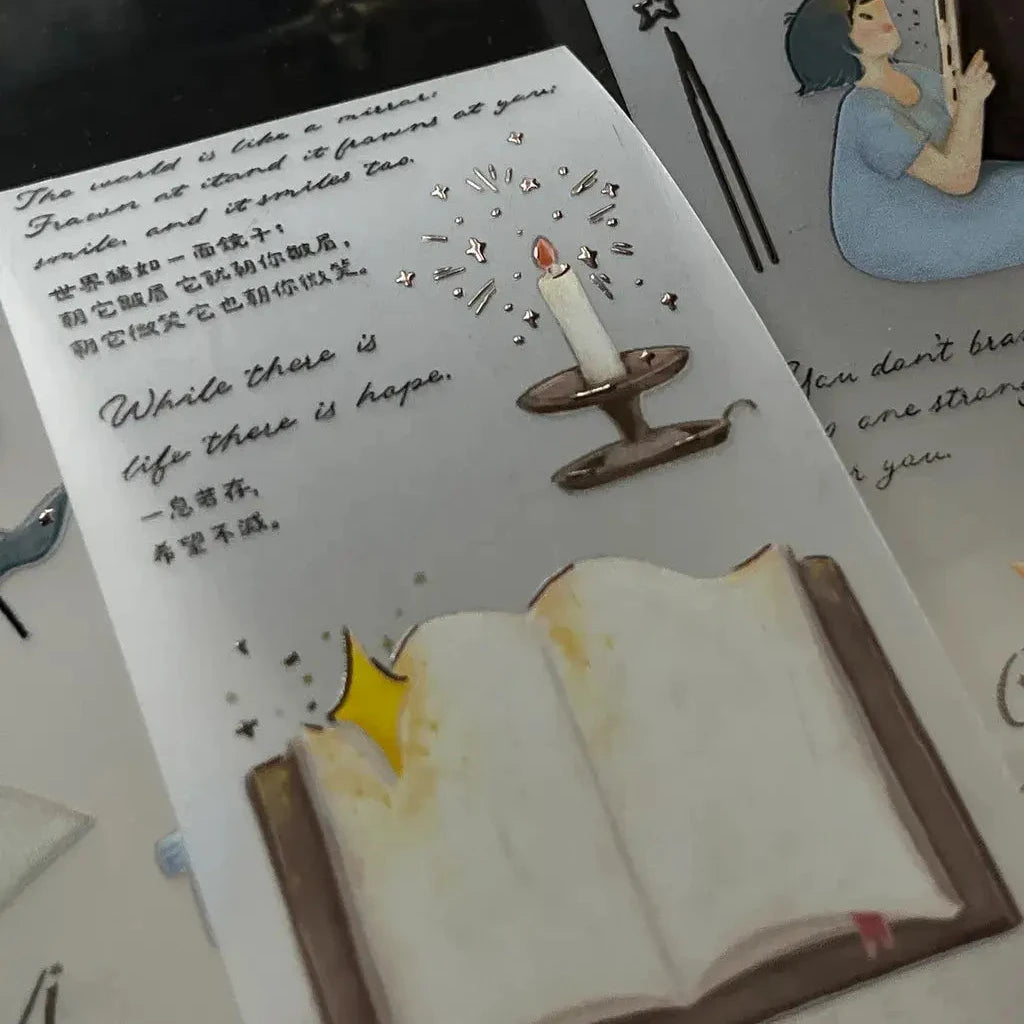 The world is like a mirror:
Frown at itand it frowns at you;
smile, and it smiles too.
世界犹如一面镜子:
朝它皱眉它就朝你皱眉,
朝它微笑它也朝你微笑。
While there is
life there is hope.
一息若存,
希望不灭。
You don't
one
you.